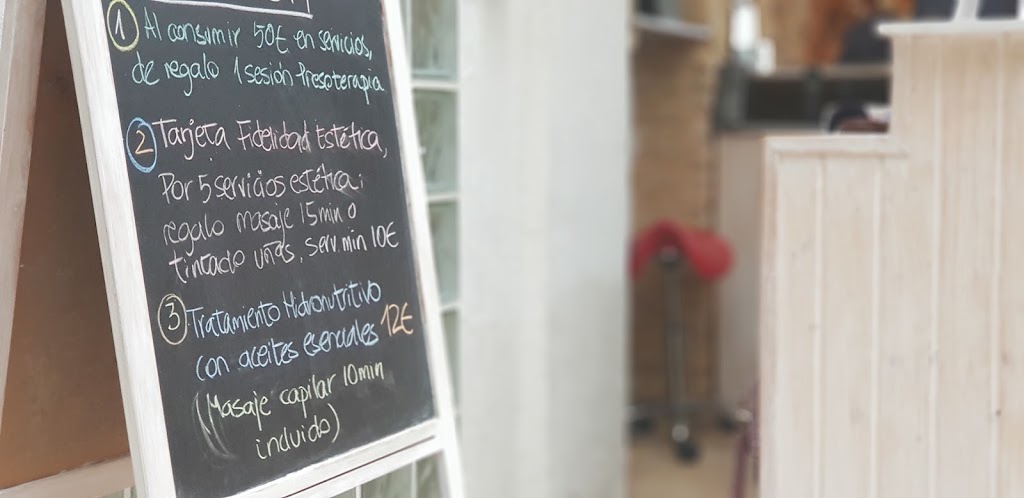 1 Al consumir 50€ en servicios,
de regalo 1 sesión Presoterapia
2 Tarjeta Fidelidad Estética,
Por 5 servicios estética,
regalo masaje 15min o
tintado uñas. Serv. min 10€
3 Tratamiento Hidronutritivo
con aceites esenciales 12€
(Masaje capilar 10min
incluido)